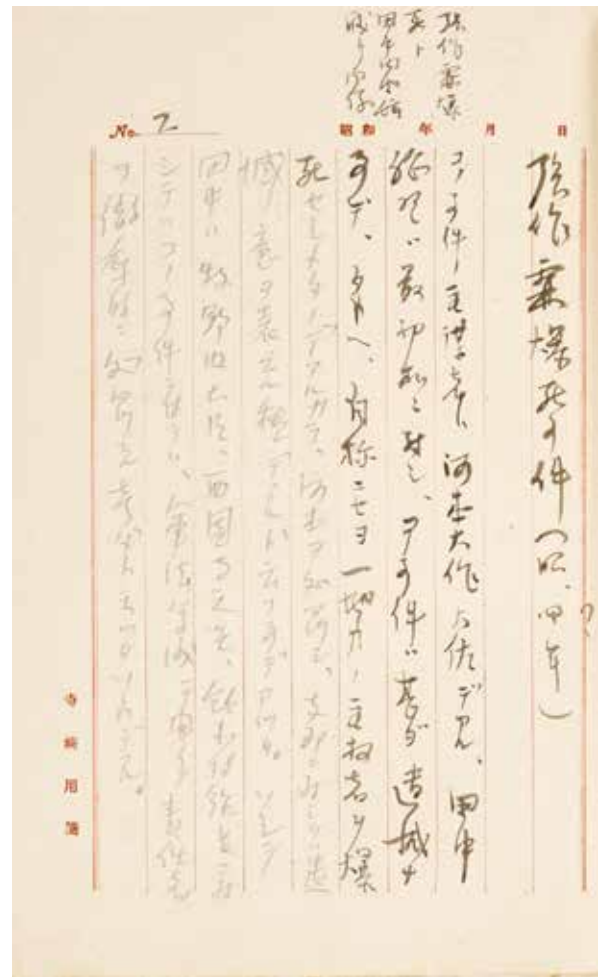 張作霖爆
死ト
田中内閣辞
職ノ関係
No. 2
昭和 年 月 日
張作霖爆死事件(昭、四年)
コノ事件ノ主謀者ハ河本大作大佐デアル、田中
総理ハ最初私ニ対シ、コノ事件ハ甚ダ遺憾ナ
事デ、タトヘ、自称ニセヨ一地方ノ主権者ヲ爆
死セシメタノデアルカラ、河本ヲ処罰シ、支那ニ対シテハ遺
憾ノ意ヲ表スル積デアル、ト云フ事デアツタ。ソシテ
田中ハ牧野内大臣、西園寺元老、鈴木侍従長ニ対
シテハコノ事件ニ付テハ、軍法会議ヲ開イテ責任者
ヲ徹底的ニ処罰スル考ダト云ツタソウデアル。
寺崎用箋